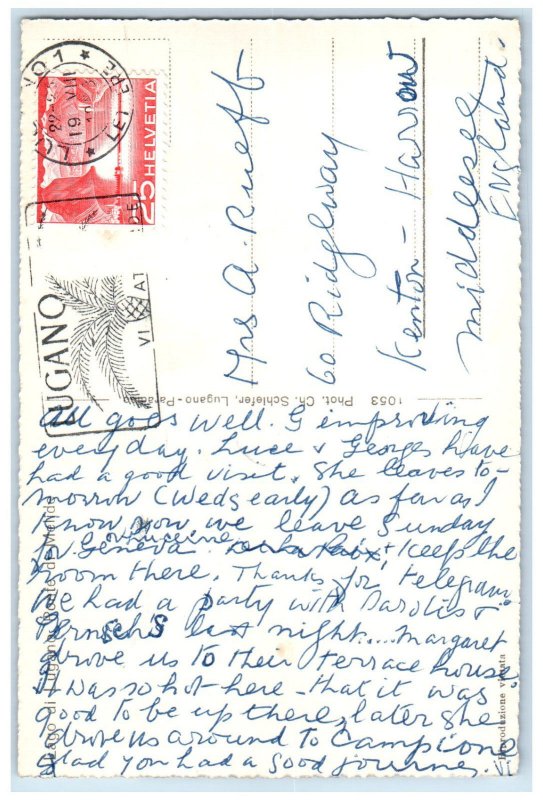 HELVETIA
25
LUGANO
VI AT
Mrs A. Rueff
60 Ridgeway
Kenton - Harrow
Middlesex
England.
1053 Phot. Ch. Schiefer, Lugano-Paradiso
Lago di Lugano: Ponte di Melide
Riproduzione vietata
All goes well. G improving
everyday. Luce & Georges have
had a good visit. She leaves to-
morrow (Weds early) as far as I
know now we leave Sunday
for Geneva & keep the
room there. Thanks for telegram
We had a party with &
last night.... Margaret
drove us to their terrace house.
It was so hot here - that it was
good to be up there, later she
drove us around to Campione
Glad you had a good journey.